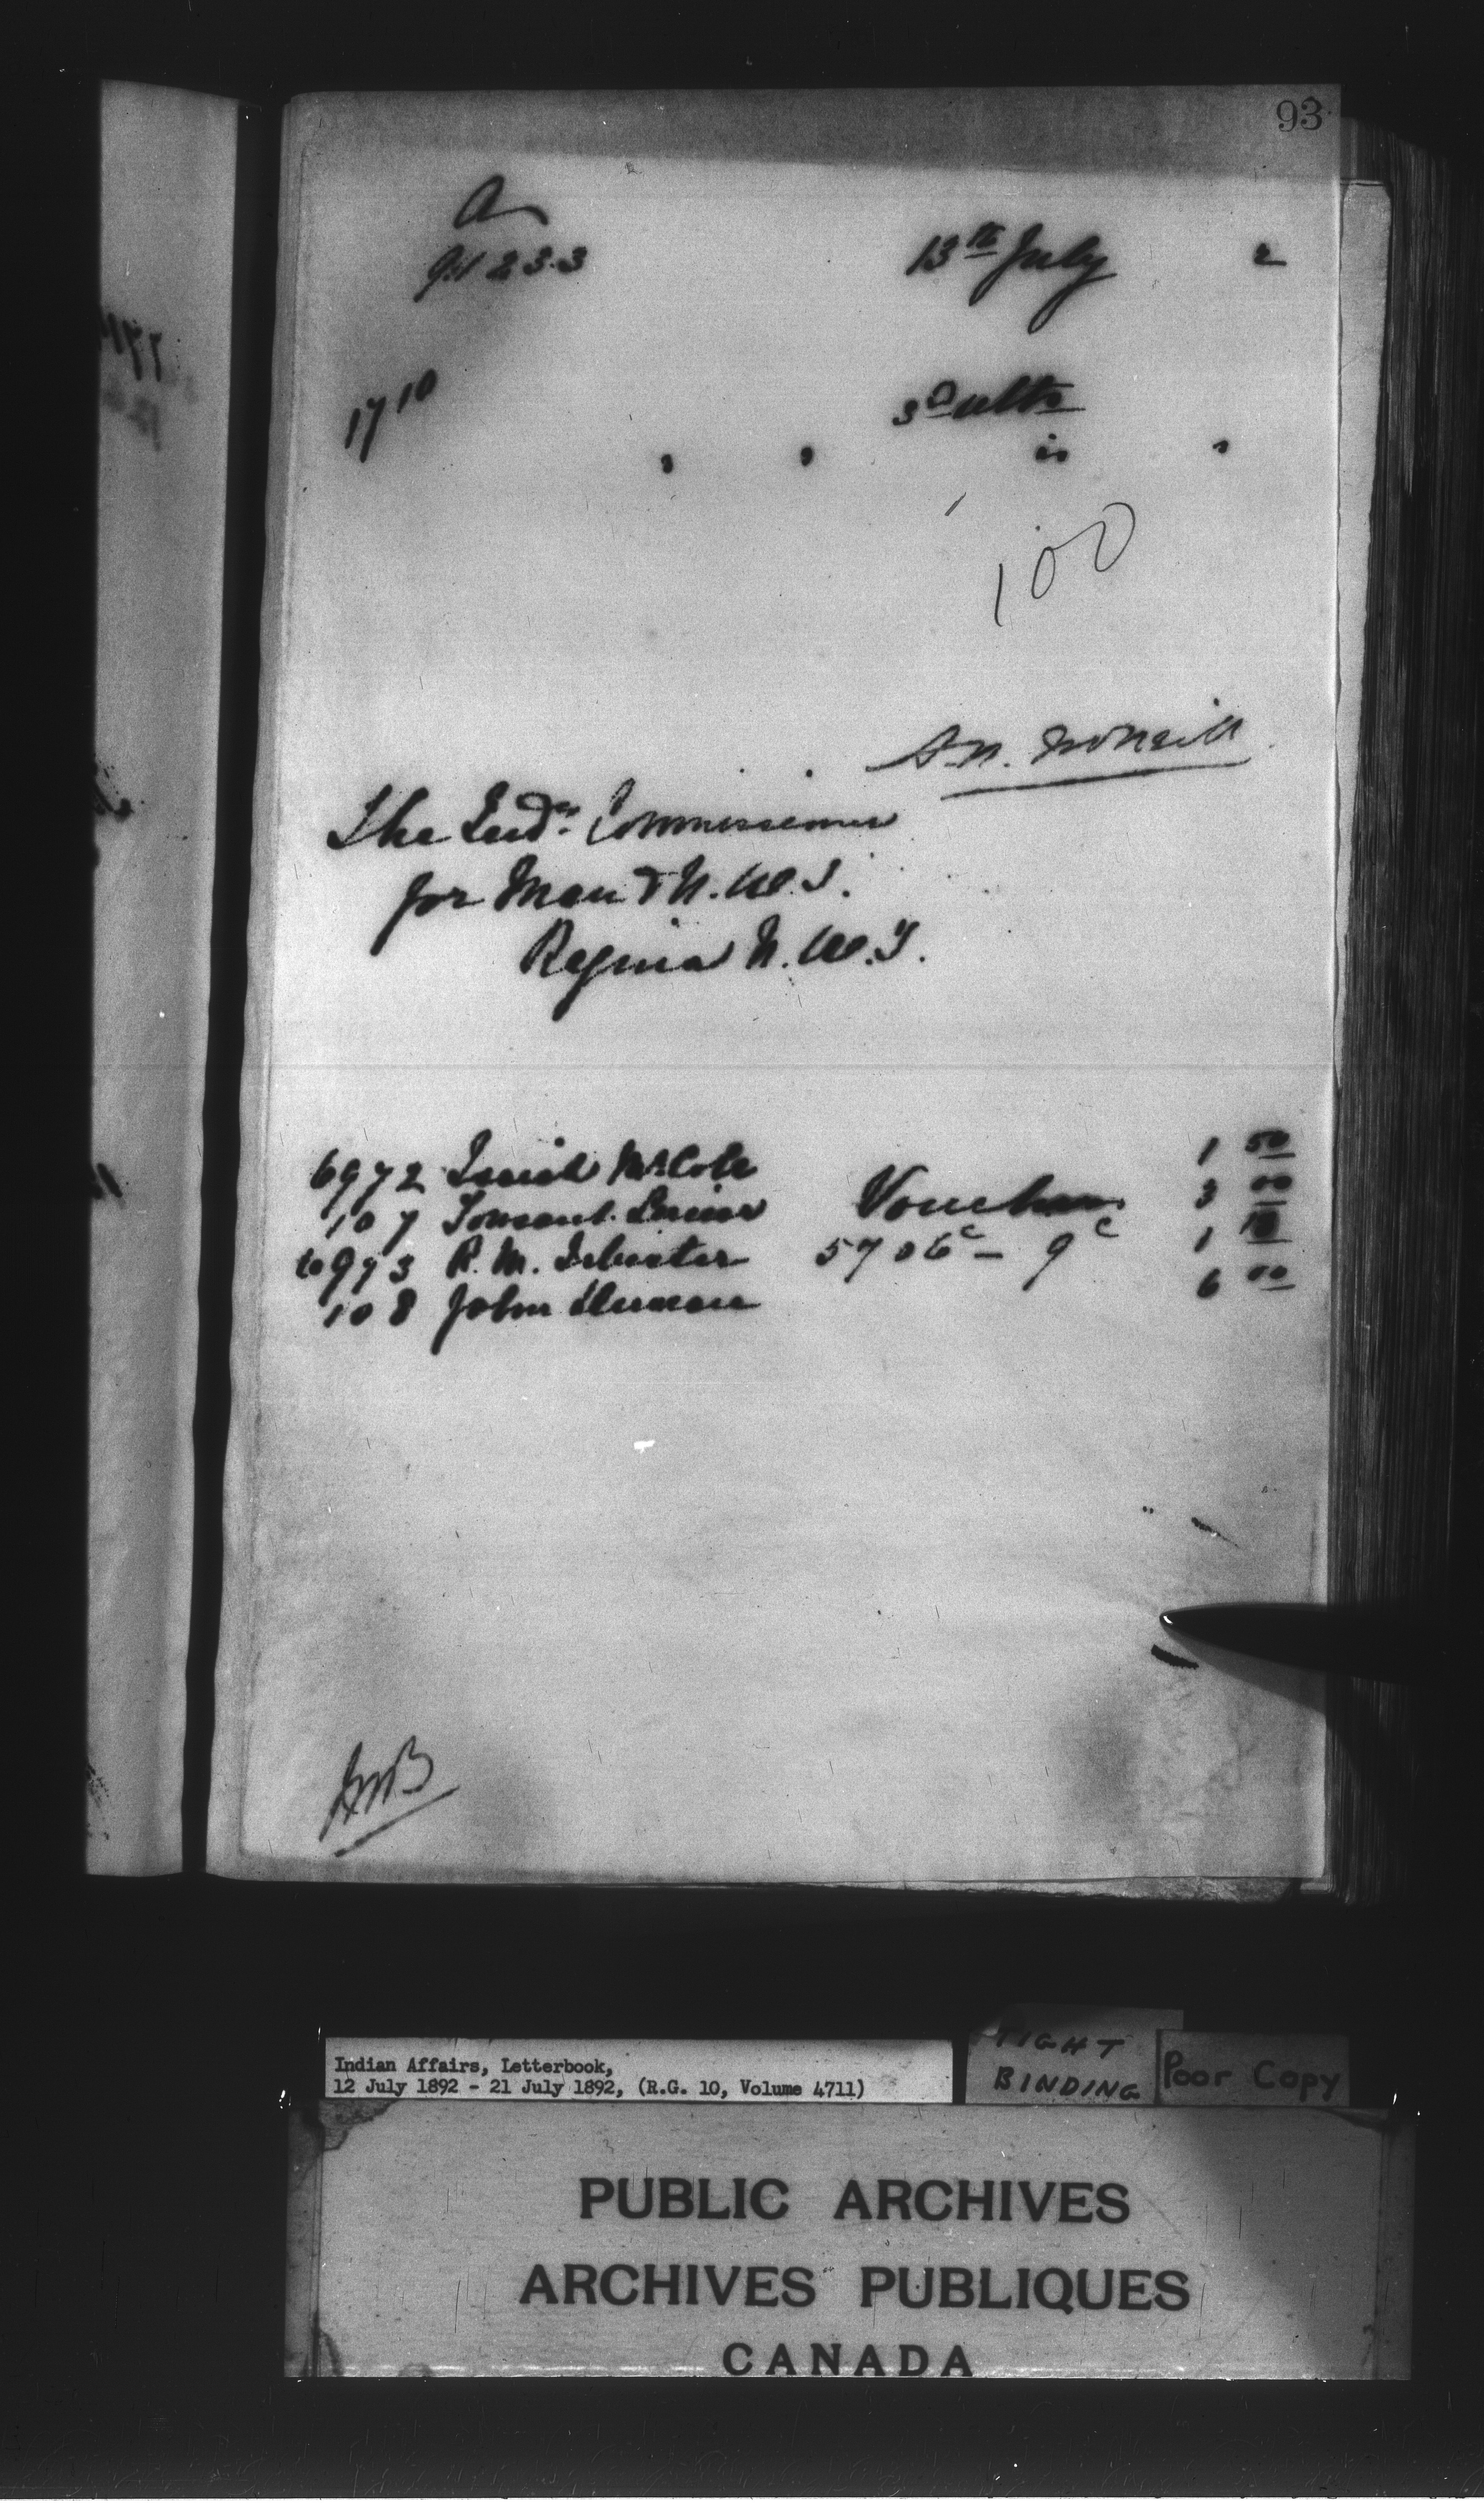 93
A
91233
13th July 2
1710
3d ulto
" " is "
100
A. N. McNeill
The Indn. Commissioner
for Man & N.W.T.
Regina N.W.T.
6972 McCole 1 50
107 3 00
Vouchers
6973 R. M. 5706c - 9c 1
108 John 6 00
Indian Affairs, Letterbook,
12 July 1892 - 21 July 1892, (R.G. 10, Volume 4711)
TIGHT
BINDING
Poor Copy
PUBLIC ARCHIVES
ARCHIVES PUBLIQUES
CANADA